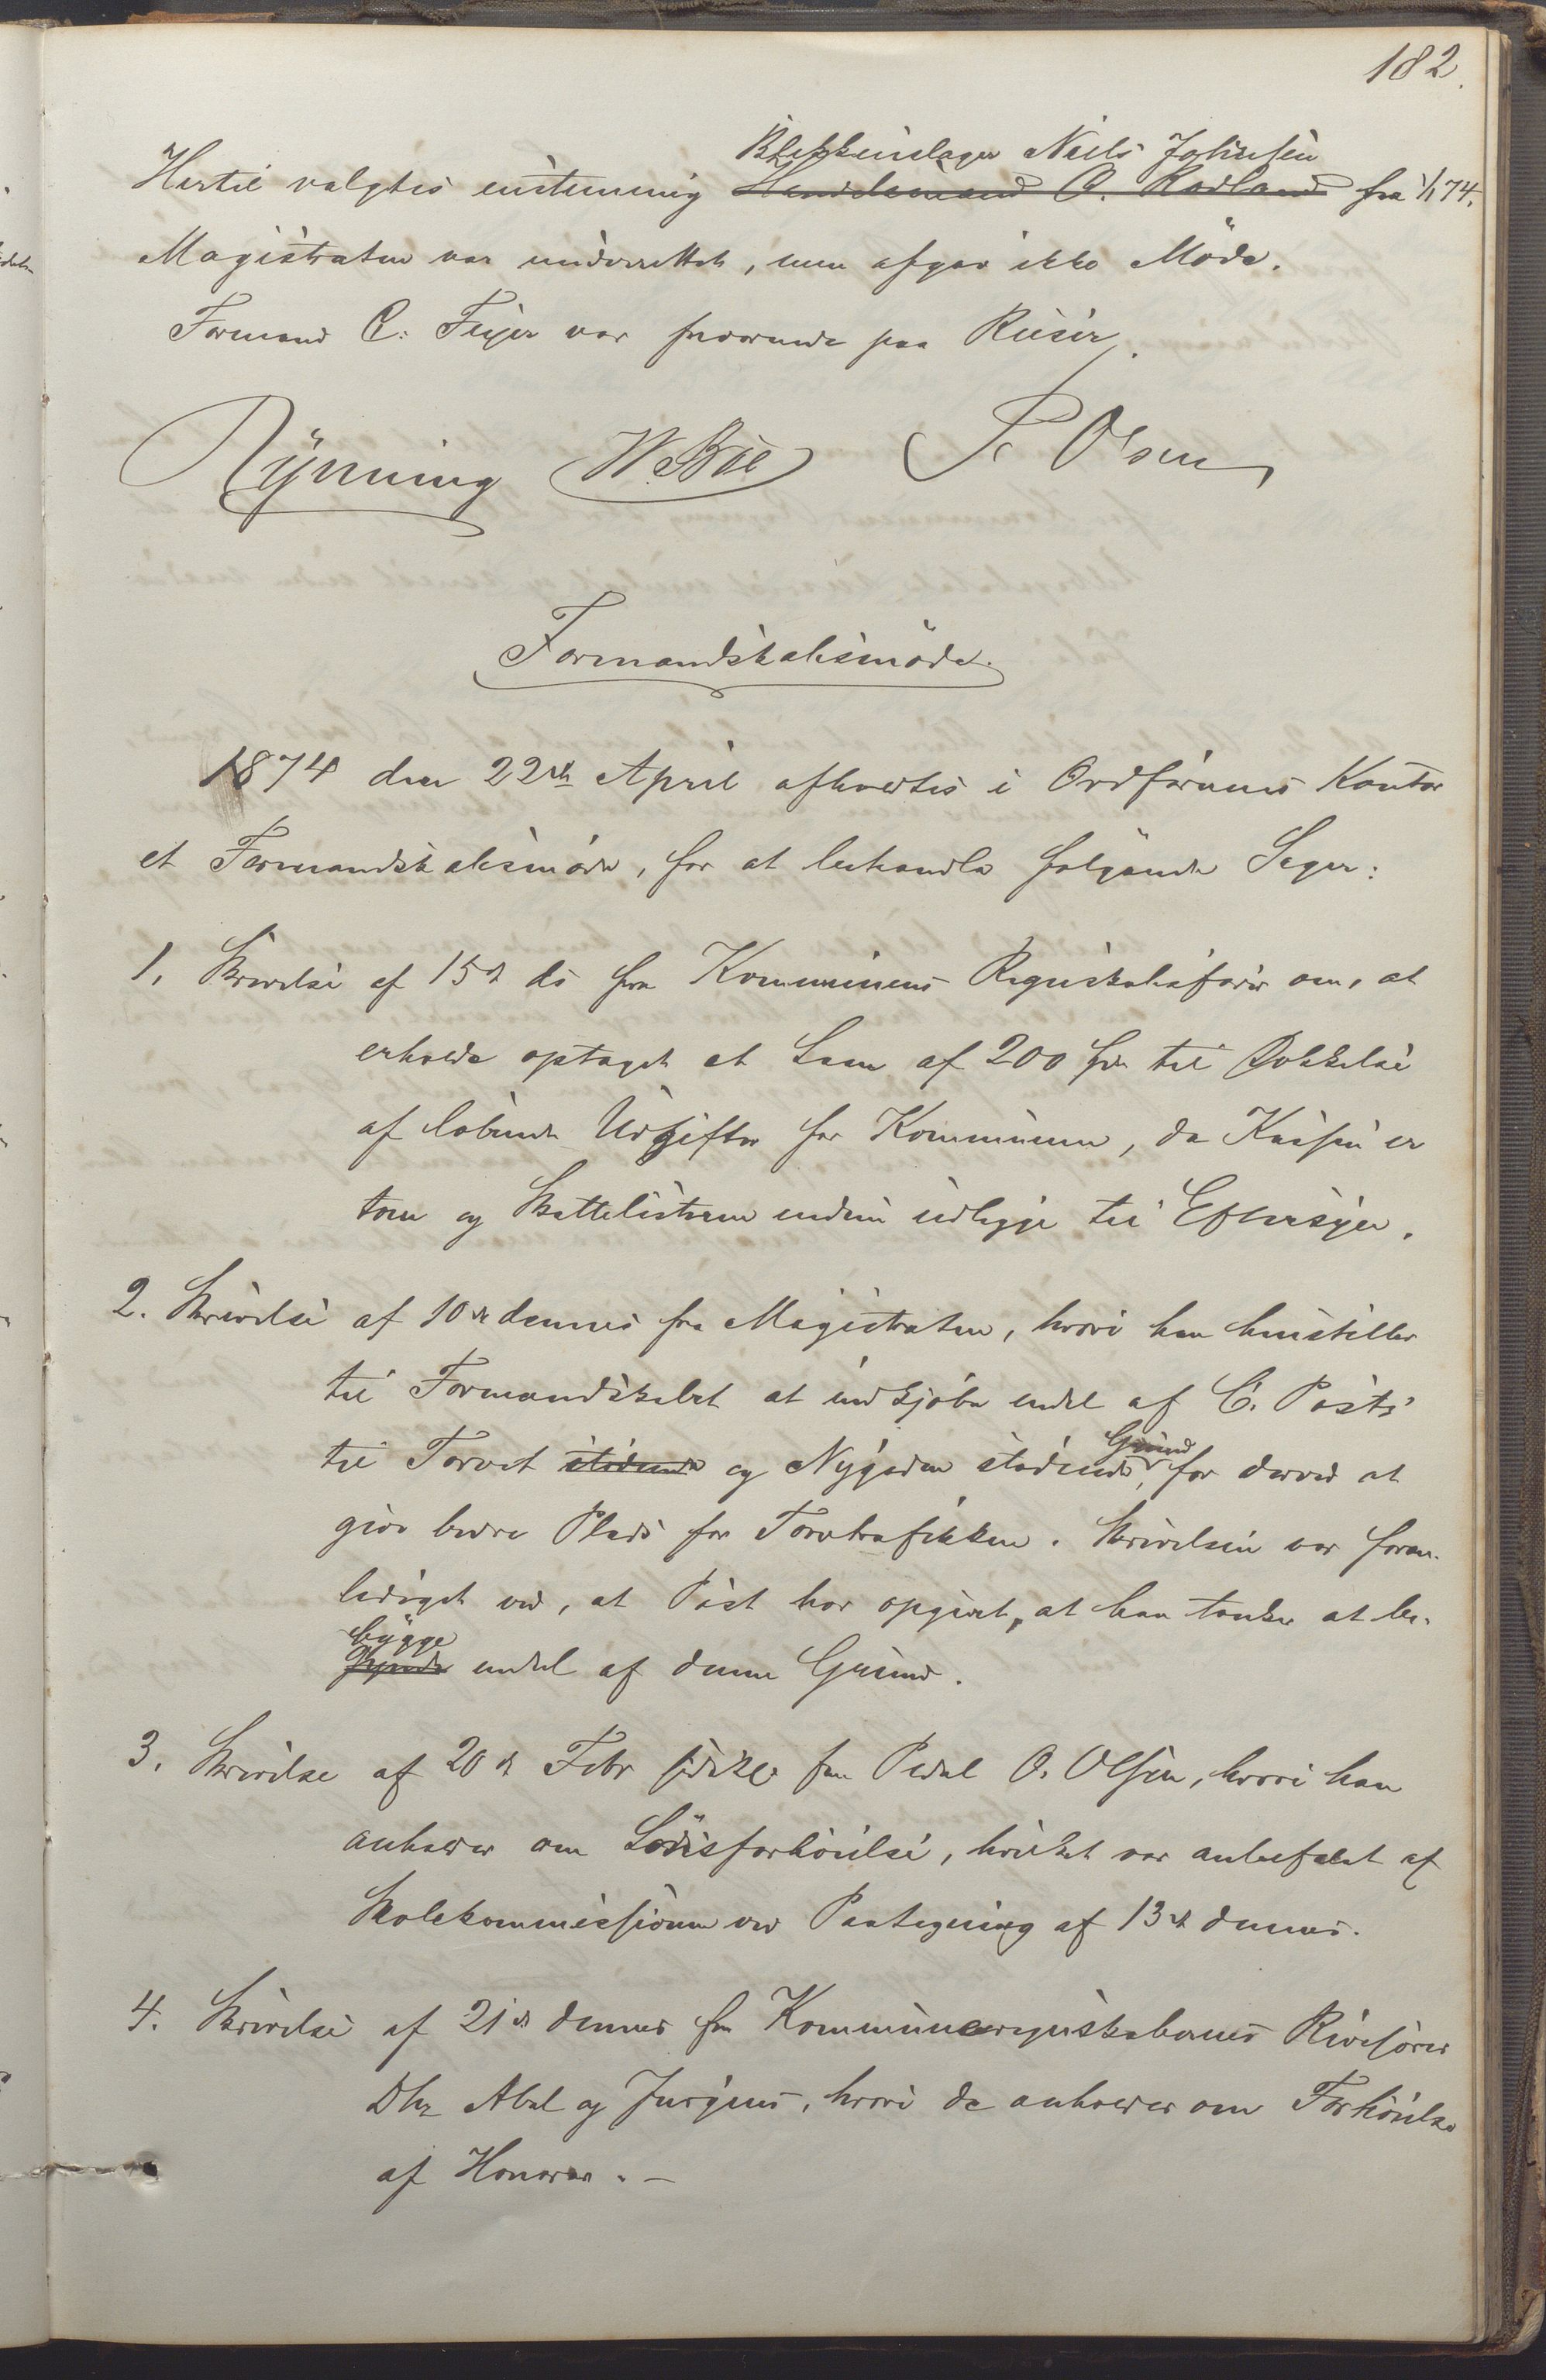 182.
Blikkenslager Niels Johnsen
Hertil valgtes enstemmig Handelsmand O. Rodland fra 1/1 74.
Magistraten var underrettet, men afgav ikke Möde.
Formand C. Feyer var fraværende paa Reiser.
Rynning W. Bøe P Olsen
Formandskabsmöde.
1874 den 22de April afholdtes i Ordförerens Kontor
et Formandskabsmöde, for at behandle følgende Sager:
1. Skrivelse af 15de ds fra Kommunens Regnskabsfører om, at
erholde optaget et Laan af 200 Spd. til Dækkelse
af løbende Udgifter for Kommunen, da Kassen er
tom og Skattelisterne endnu udligge til Eftersyn.
2. Skrivelse af 10de dennes fra Magistraten, hvori han henstiller
til Formandskabet at indkjøbe endel af C. Posts
til Torvet stödende og Nygaden stödende Grund, for derved at
give bedre Plads for Torvtrafikken. Skrivelsen var foran-
lediget ved, at Post har opgivet, at han tænker at be-
bygge
endel af denne Grund.
3. Skrivelse af 20de Febr sidstl. fra Pedel O. Olsen, hvori han
anholder om Lönsforhöielse, hvilket var anbefalet af
Skolekommissionen ved Paategning af 13de dennes.
4. Skrivelse af 21de dennes fra Kommuneregnskabernes Revisorer
Dhr Abel og Jurgens, hvori de anholder om Forhöielse
af Honorar. —